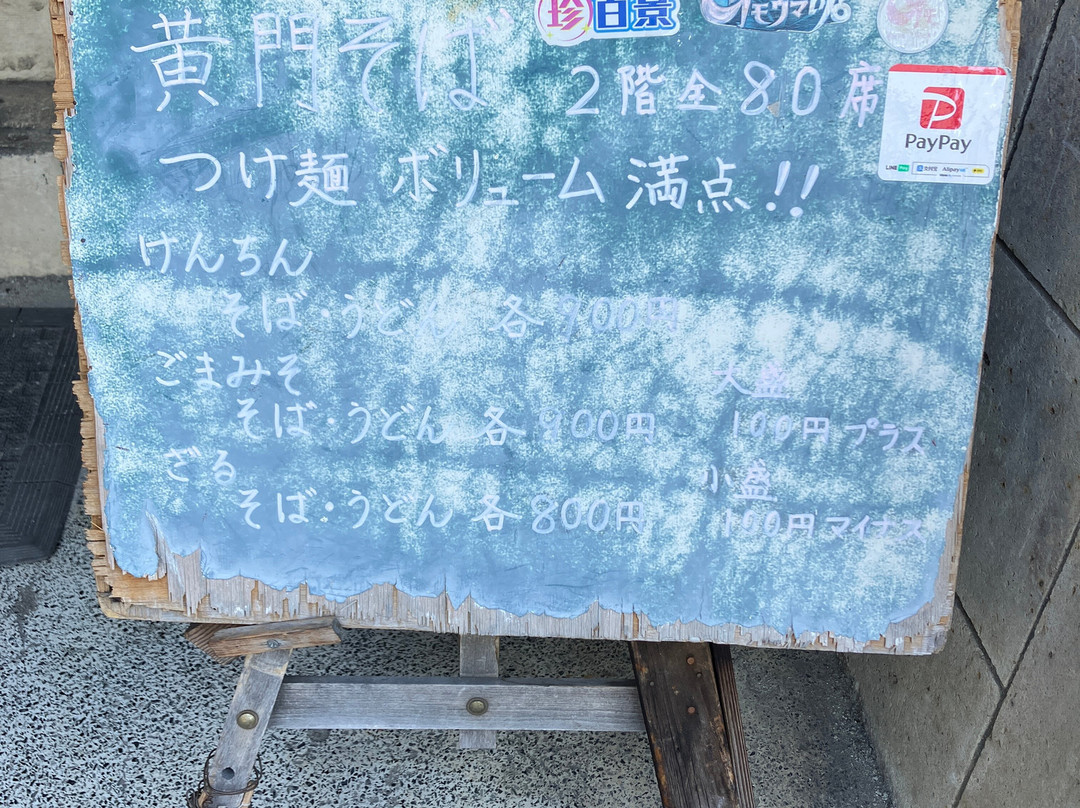 珍百景
黄門そば
2階全80席
PayPay
つけ麺 ボリューム満点!!
けんちん
そば・うどん 各900円
ごまみそ
そば・うどん 各900円
ざる
そば・うどん 各800円
大盛
100円プラス
小盛
100円マイナス